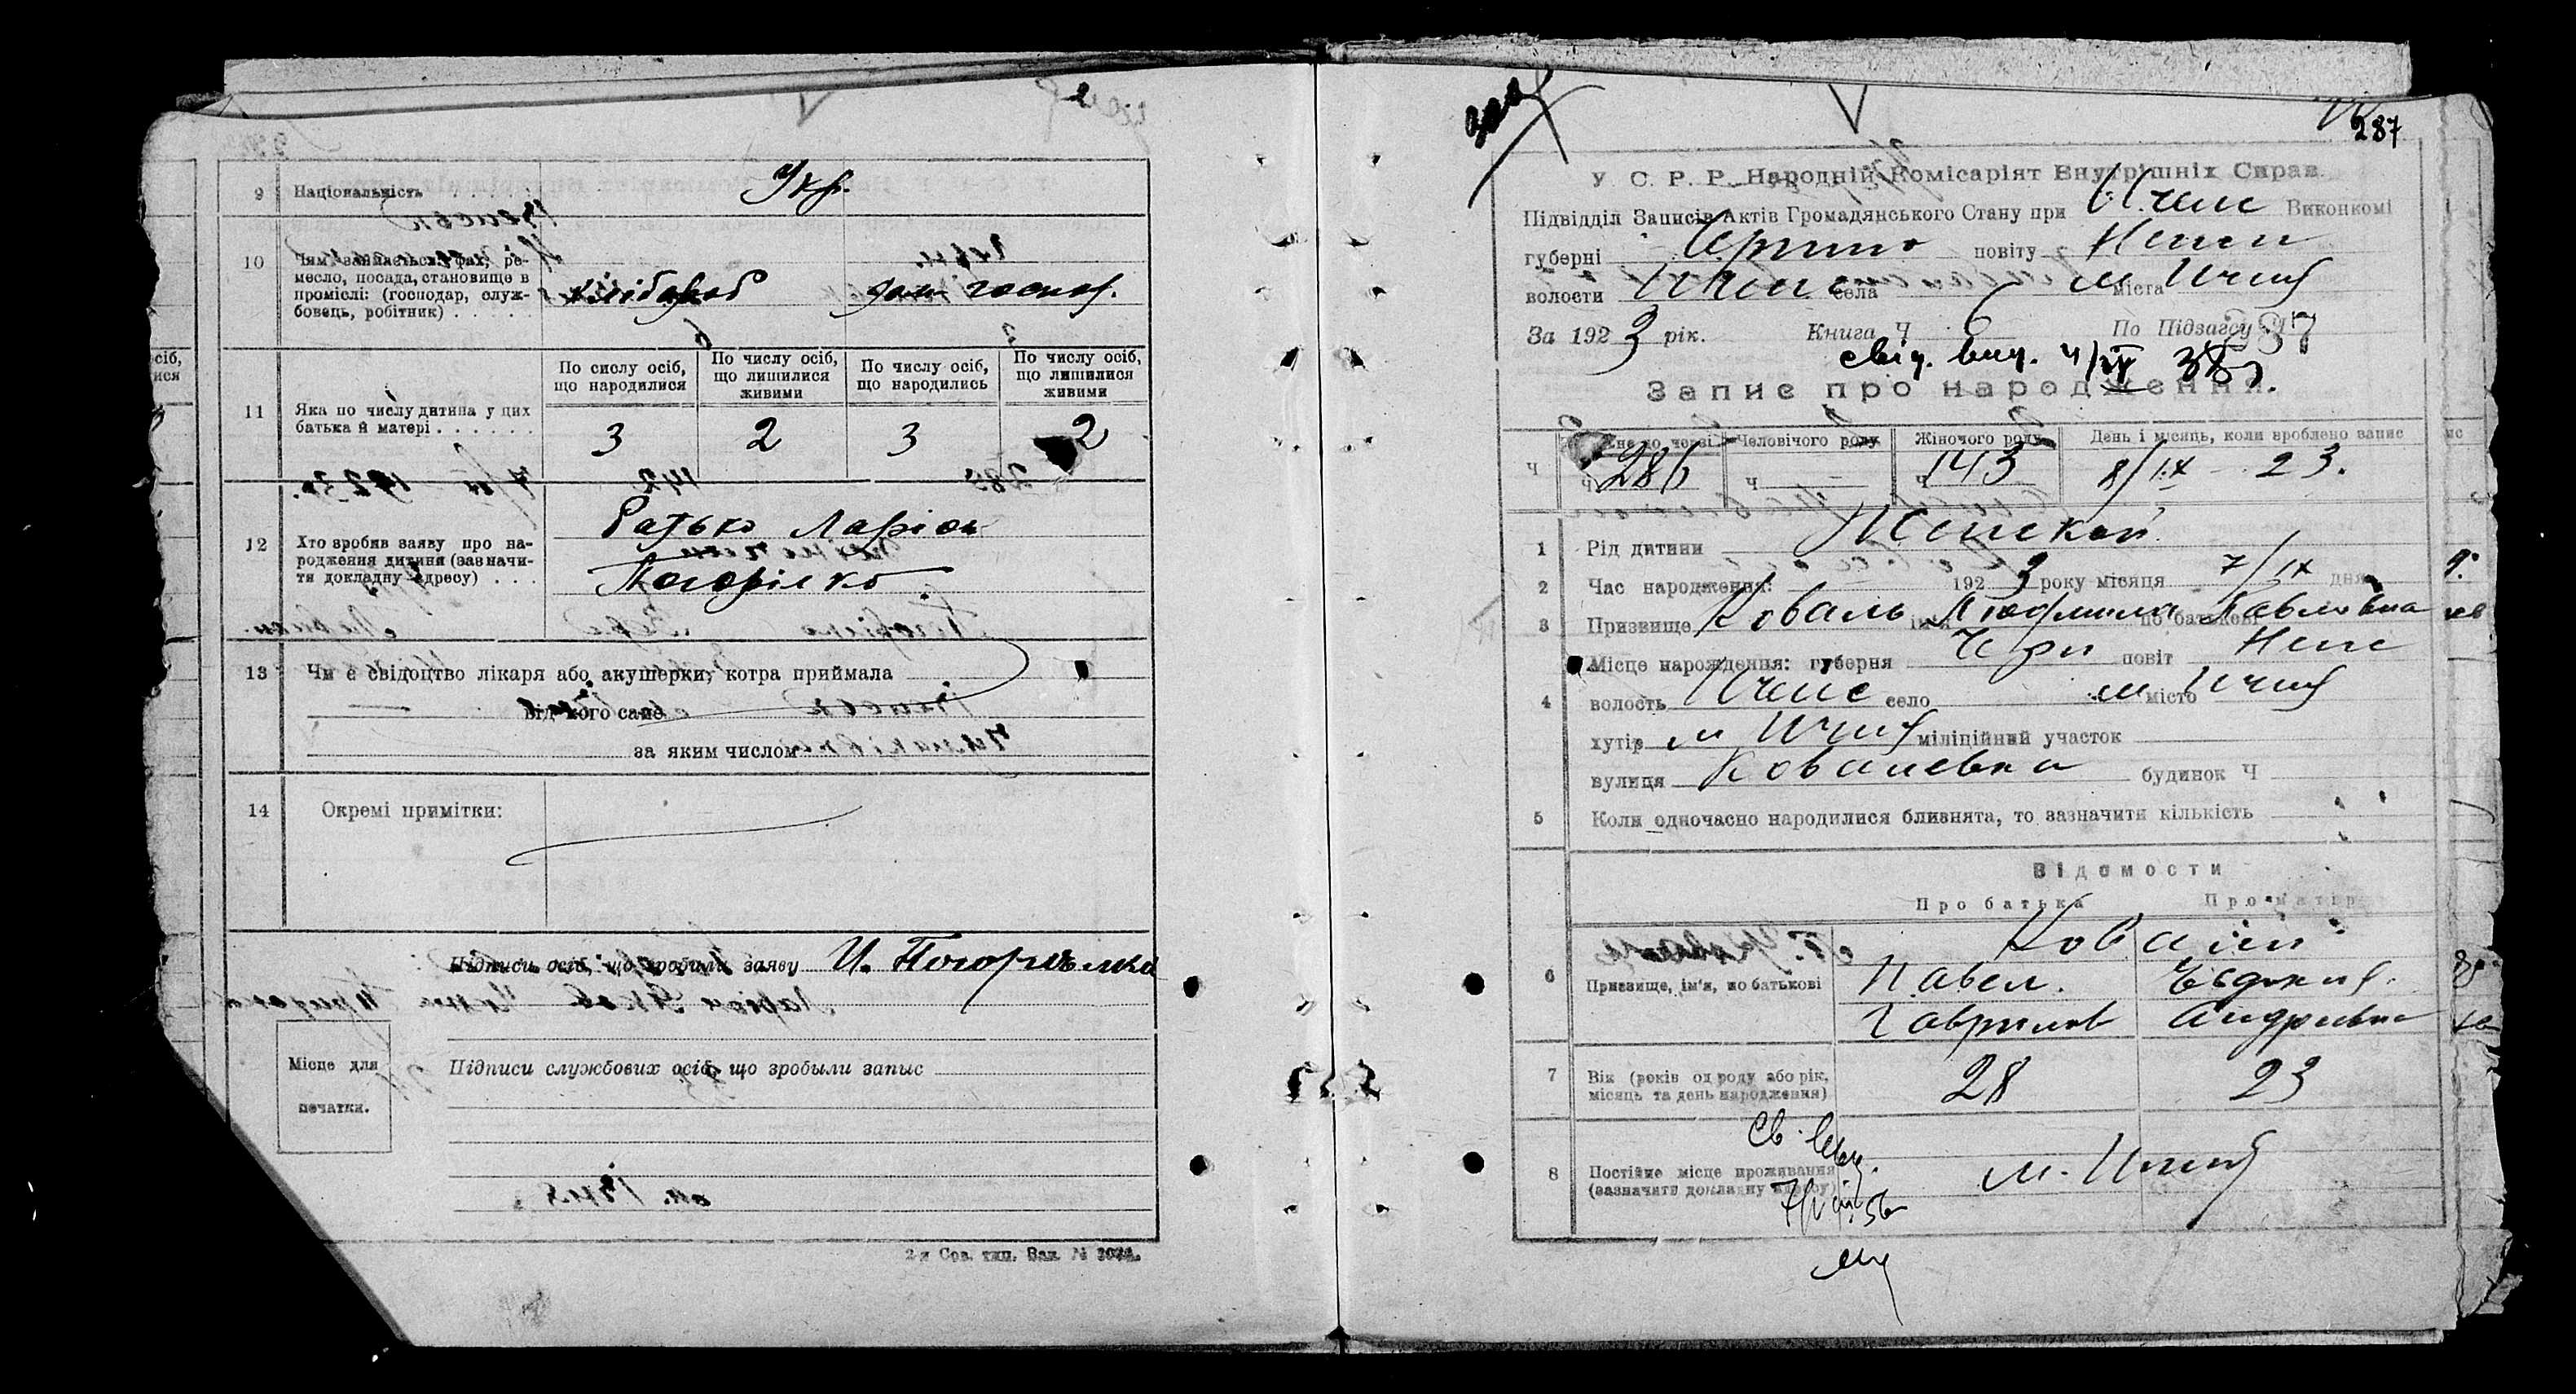 9 Національність . . . . . Укр.
10 Чим займається: фах, ре-
месло, посада, становище в
проміслі: (господар, служ-
бовець, робітник) . . . . . хлібороб дом госпор.
По сислу осіб, що народилися
По числу осіб, що лишилися живими
По числу осіб, що народились
По числу осіб, що лишилися живими
11 Яка по числу дитина у цих
батька й матері . . . . . . 3 2 3 2
12 Хто зробив заяву про на-
родження дитини (зазначи-
ти докладну адресу) . . .
Батько Ларіон
Погорілко
13 Чи є свідоцтво лікаря або акушерки, котра приймала
від кого саме
за яким числом
14 Окремі примітки:
Підписи осіб, що зробили заяву И. Погорелко
Місце для
печатки.
Підписи службових осіб, що зробыли запыс
2-я Сов. тип. Зак. №
287
У. С. Р. Р. Народній Комісаріят Внутрішніх Справ.
Підвідділ Записів Актів Громадянського Стану при Ичен Виконкомі
губерні Черниго повіту Нежин
волости Ичен села м міста Ичня
За 1923 рік. Книга Ч 6 По Підзагсу Ч 287
свід. вид. 4/IV 38 р.
Запис про народження.
Ч
Человічого роду
Жіночого роду
День і місяць, коли зроблено запис
ч 286 ч — ч 143 8/IX - 23.
1 Рід дитини Женской
2 Час народження: 1923 року місяця 7/IX дня
3 Призвище Коваль ім'я Людмила по батькові Павловна
4 Місце народження: губерня Черн повіт Неж
волость Ичен село м місто Ичня
хутір м Ичня міліційний участок
вулиця Ковалевка будинок Ч
5 Коли одночасно народилися близнята, то зазначити кількість
Відомости
Про батька Про матір
6 Призвище, ім'я, по батькові
Ковалі
Павел. Евдокия.
Гаврилов Андреевна
7 Вік (років од роду або рік,
місяць та день народження) 28 23
8 Постійне місце проживання
(зазначити докладну адресу) м. Ичня